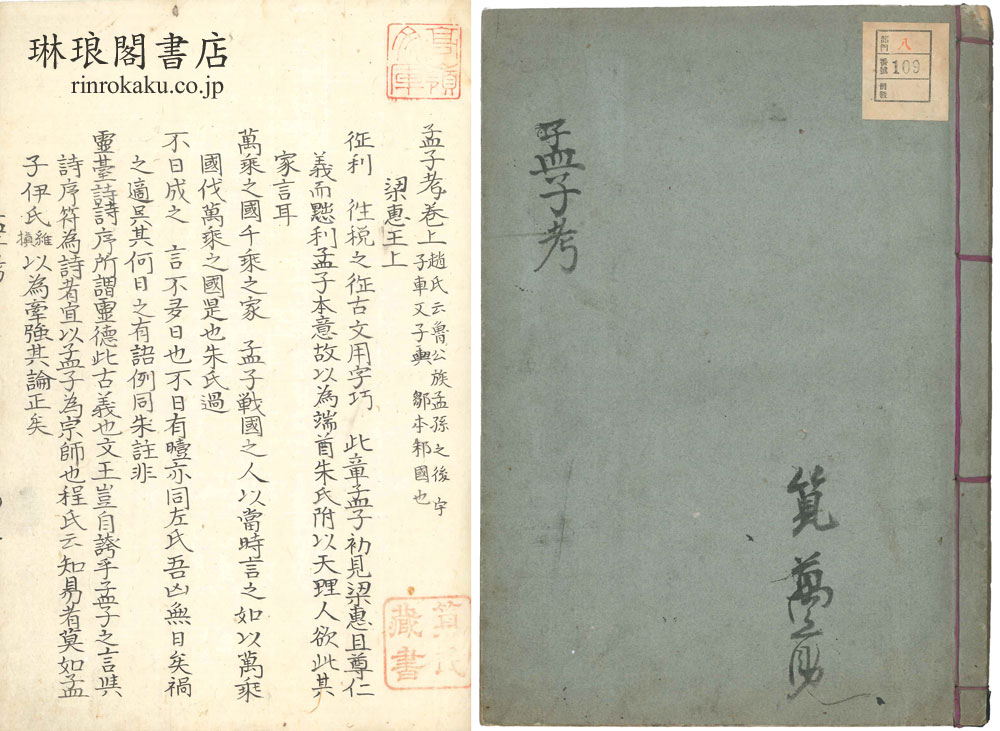 琳琅閣書店
rinrokaku.co.jp
孟子考巻上 趙氏云魯公族孟孫之後字
子車又子輿 鄒本邾國也
梁惠王上
征利 往税之征古文用字巧 此章孟子初見梁惠且尊仁
義而黜利孟子本意故以為端首朱氏附以天理人欲此其
家言耳
萬乘之國千乘之家 孟子戦國之人以當時言之如以萬乘
國伐萬乘之國是也朱氏過
不日成之 言不多日也不日有曀亦同左氏吾凶無日矣禍
之適吳其何日之有語例同朱註非
靈臺詩詩序所謂靈德此古義也文王豈自誇乎孟子之言與
詩序符為詩者宜以孟子為宗師也程氏云知易者莫如孟
子伊氏維楨以為牽強其論正矣
髙嶺
文庫
筧氏
藏書
孟子考
筧
部門 八
番號 109
冊數